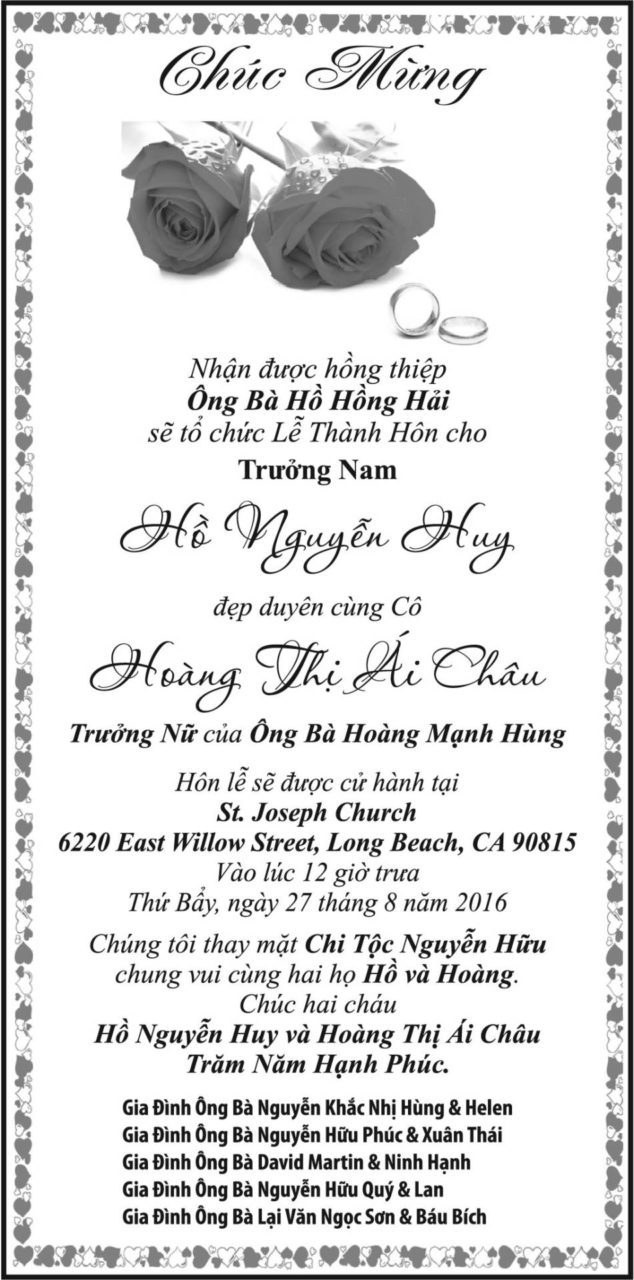 Chúc Mừng
Nhận được hồng thiệp
Ông Bà Hồ Hồng Hải
sẽ tổ chức Lễ Thành Hôn cho
Trưởng Nam
Hồ Nguyễn Huy
đẹp duyên cùng Cô
Hoàng Thị Ái Châu
Trưởng Nữ của Ông Bà Hoàng Mạnh Hùng
Hôn lễ sẽ được cử hành tại
St. Joseph Church
6220 East Willow Street, Long Beach, CA 90815
Vào lúc 12 giờ trưa
Thứ Bẩy, ngày 27 tháng 8 năm 2016
Chúng tôi thay mặt Chi Tộc Nguyễn Hữu
chung vui cùng hai họ Hồ và Hoàng.
Chúc hai cháu
Hồ Nguyễn Huy và Hoàng Thị Ái Châu
Trăm Năm Hạnh Phúc.
Gia Đình Ông Bà Nguyễn Khắc Nhị Hùng & Helen
Gia Đình Ông Bà Nguyễn Hữu Phúc & Xuân Thái
Gia Đình Ông Bà David Martin & Ninh Hạnh
Gia Đình Ông Bà Nguyễn Hữu Quý & Lan
Gia Đình Ông Bà Lại Văn Ngọc Sơn & Báu Bích